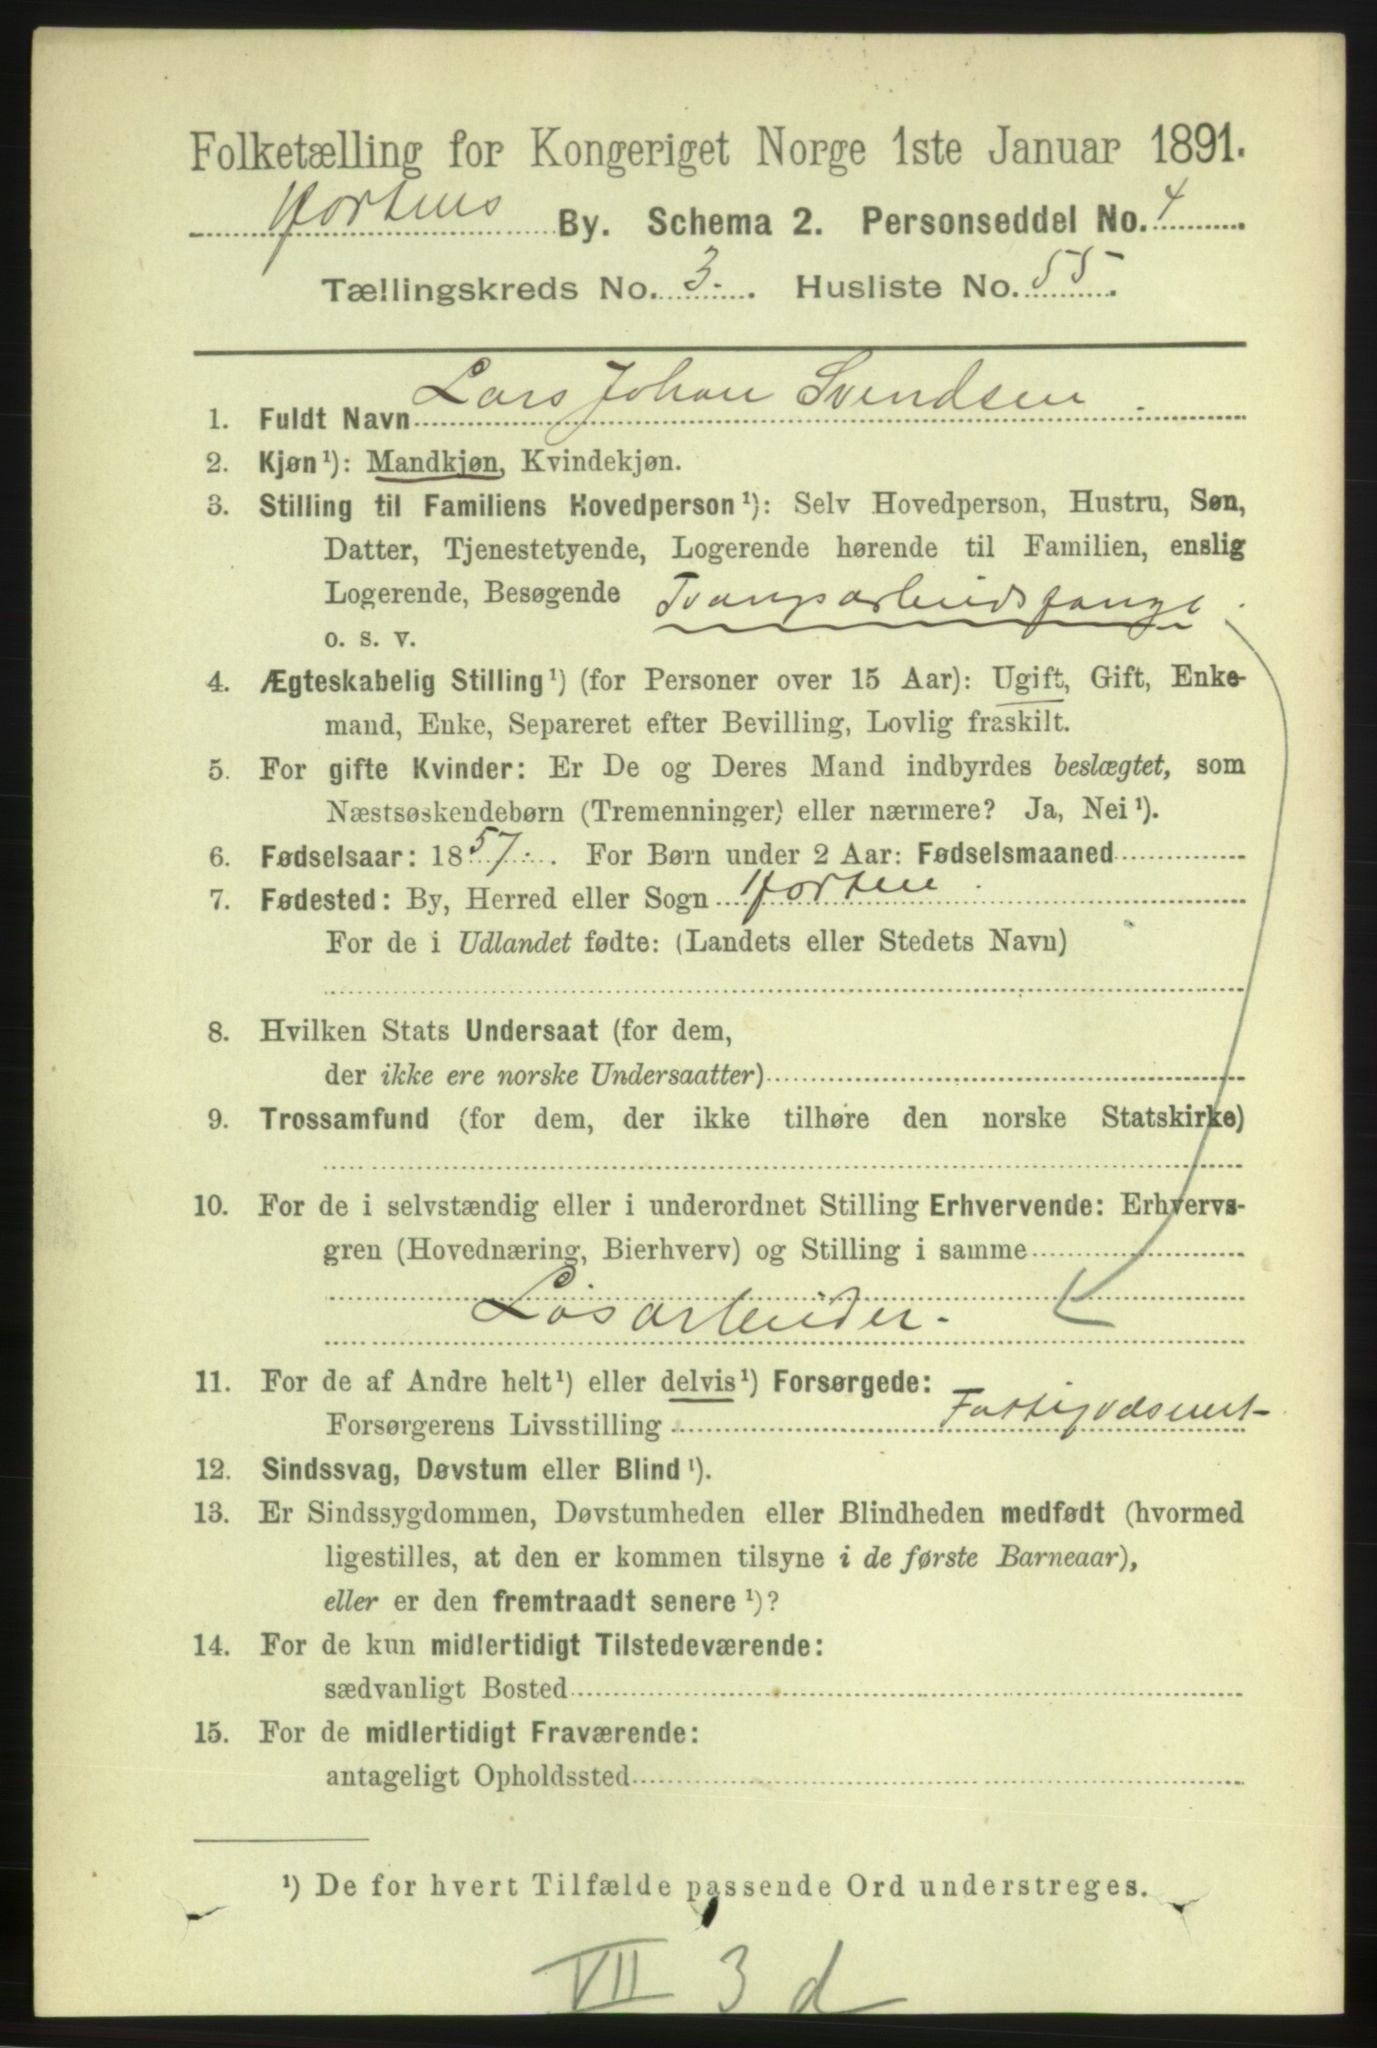 Folketælling for Kongeriget Norge 1ste Januar 1891.
Hortens By. Schema 2. Personseddel No. 4
Tællingskreds No. 3. Husliste No. 55.
1. Fuldt Navn Lars Johan Svendsen.
2. Kjøn¹): Mandkjøn, Kvindekjøn.
3. Stilling til Familiens Hovedperson¹): Selv Hovedperson, Hustru, Søn,
Datter, Tjenestetyende, Logerende hørende til Familien, enslig
Logerende, Besøgende Tvangsarbeidsfange.
o. s. v.
4. Ægteskabelig Stilling¹) (for Personer over 15 Aar): Ugift, Gift, Enke-
mand, Enke, Separeret efter Bevilling, Lovlig fraskilt.
5. For gifte Kvinder: Er De og Deres Mand indbyrdes beslægtet, som
Næstsøskendebørn (Tremenninger) eller nærmere? Ja, Nei¹).
6. Fødselsaar: 1857. For Børn under 2 Aar: Fødselsmaaned
7. Fødested: By, Herred eller Sogn Horten.
For de i Udlandet fødte: (Landets eller Stedets Navn)
8. Hvilken Stats Undersaat (for dem,
der ikke ere norske Undersaatter)
9. Trossamfund (for dem, der ikke tilhøre den norske Statskirke)
10. For de i selvstændig eller i underordnet Stilling Erhvervende: Erhvervs-
gren (Hovednæring, Bierhverv) og Stilling i samme
Løsarbeider.
11. For de af Andre helt¹) eller delvis¹) Forsørgede:
Forsørgerens Livsstilling Fattigvæsenet
12. Sindssvag, Døvstum eller Blind¹).
13. Er Sindssygdommen, Døvstumheden eller Blindheden medfødt (hvormed
ligestilles, at den er kommen tilsyne i de første Barneaar),
eller er den fremtraadt senere¹)?
14. For de kun midlertidigt Tilstedeværende:
sædvanligt Bosted
15. For de midlertidigt Fraværende:
antageligt Opholdssted
¹) De for hvert Tilfælde passende Ord understreges.
VII 3 d